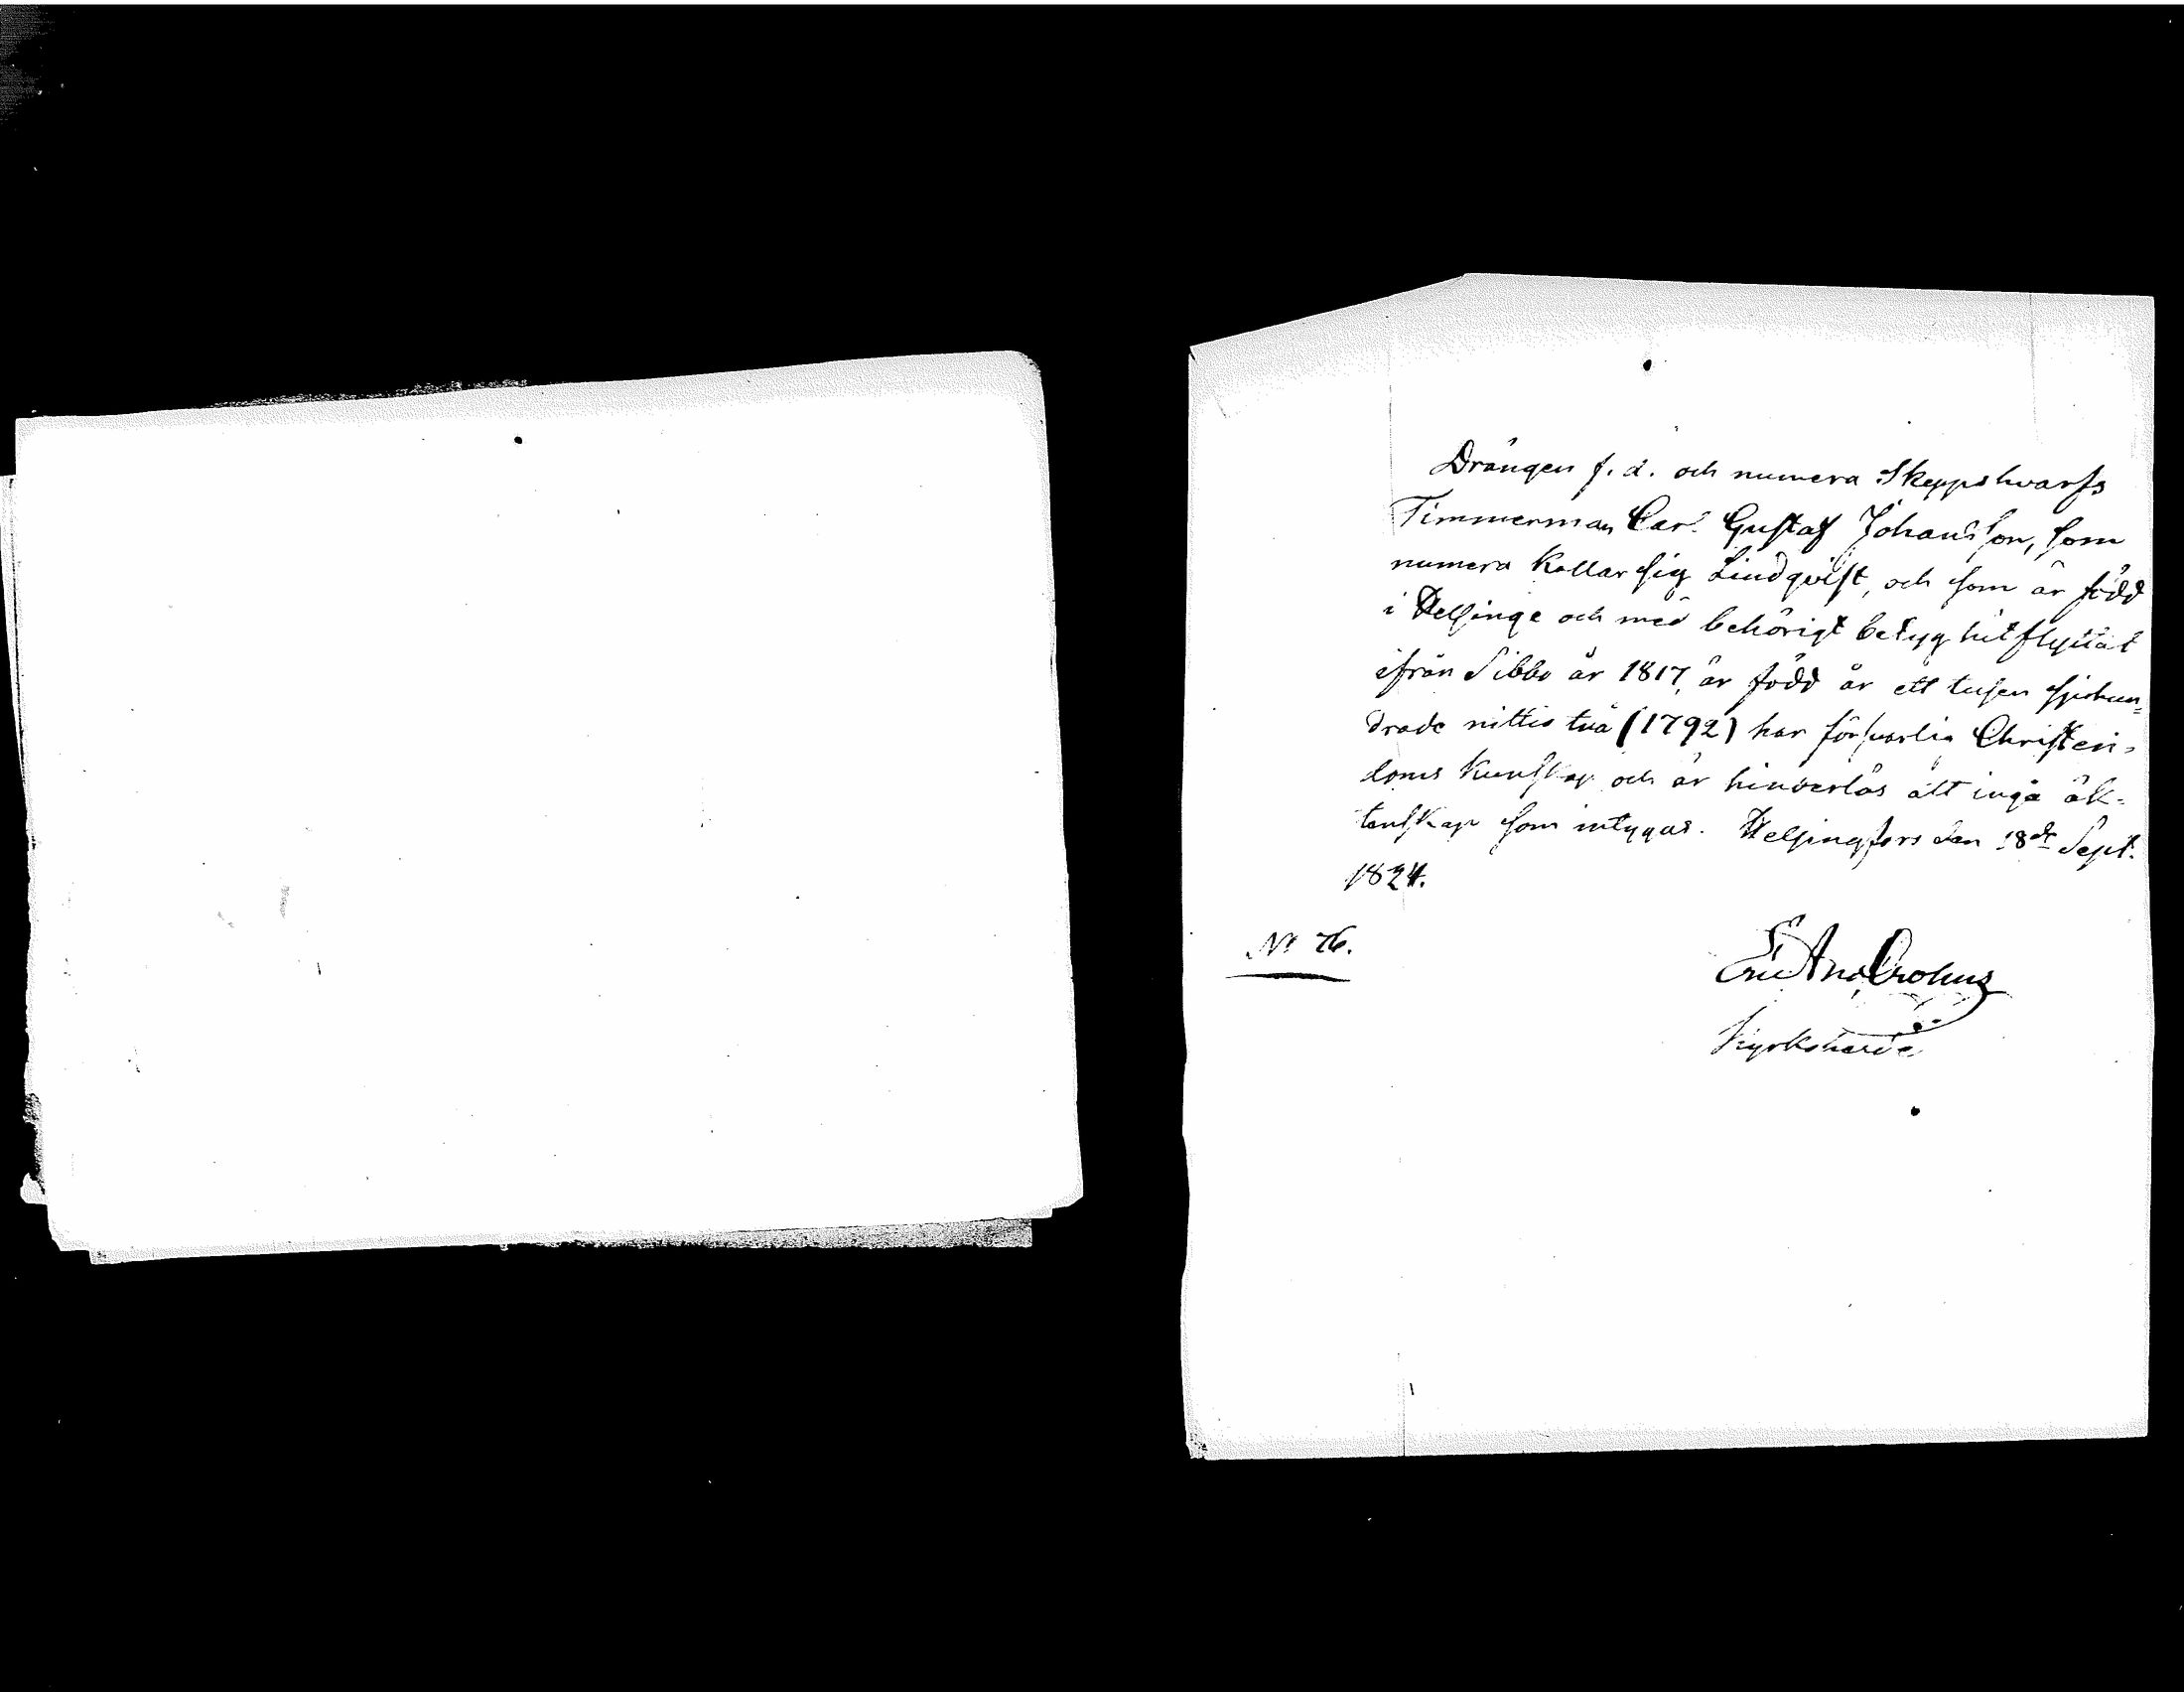 Drängen f. d. och numera Skeppshvarfs
Timmerman Carl Gustaf Johansson, som
numera kallar sig Lindqvist, och som är född
i Helsinge och med behörigt betyg hitflyttat
ifrån Sibbo år 1817, är född år ett tusen sjuhun=
drade nittio två (1792) har försvarlig Christen=
doms kunskap och är hinderlös att ingå äk=
tenskap som intygas. Helsingfors den 18de Sept.
1824.
No 76.
Eric And Crohns
Kyrkoherde